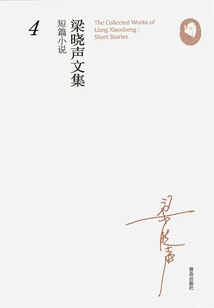 4
梁晓声文集
短篇小说
The Collected Works of
Liang Xiaosheng :
Short Stories
梁晓声
青岛出版社